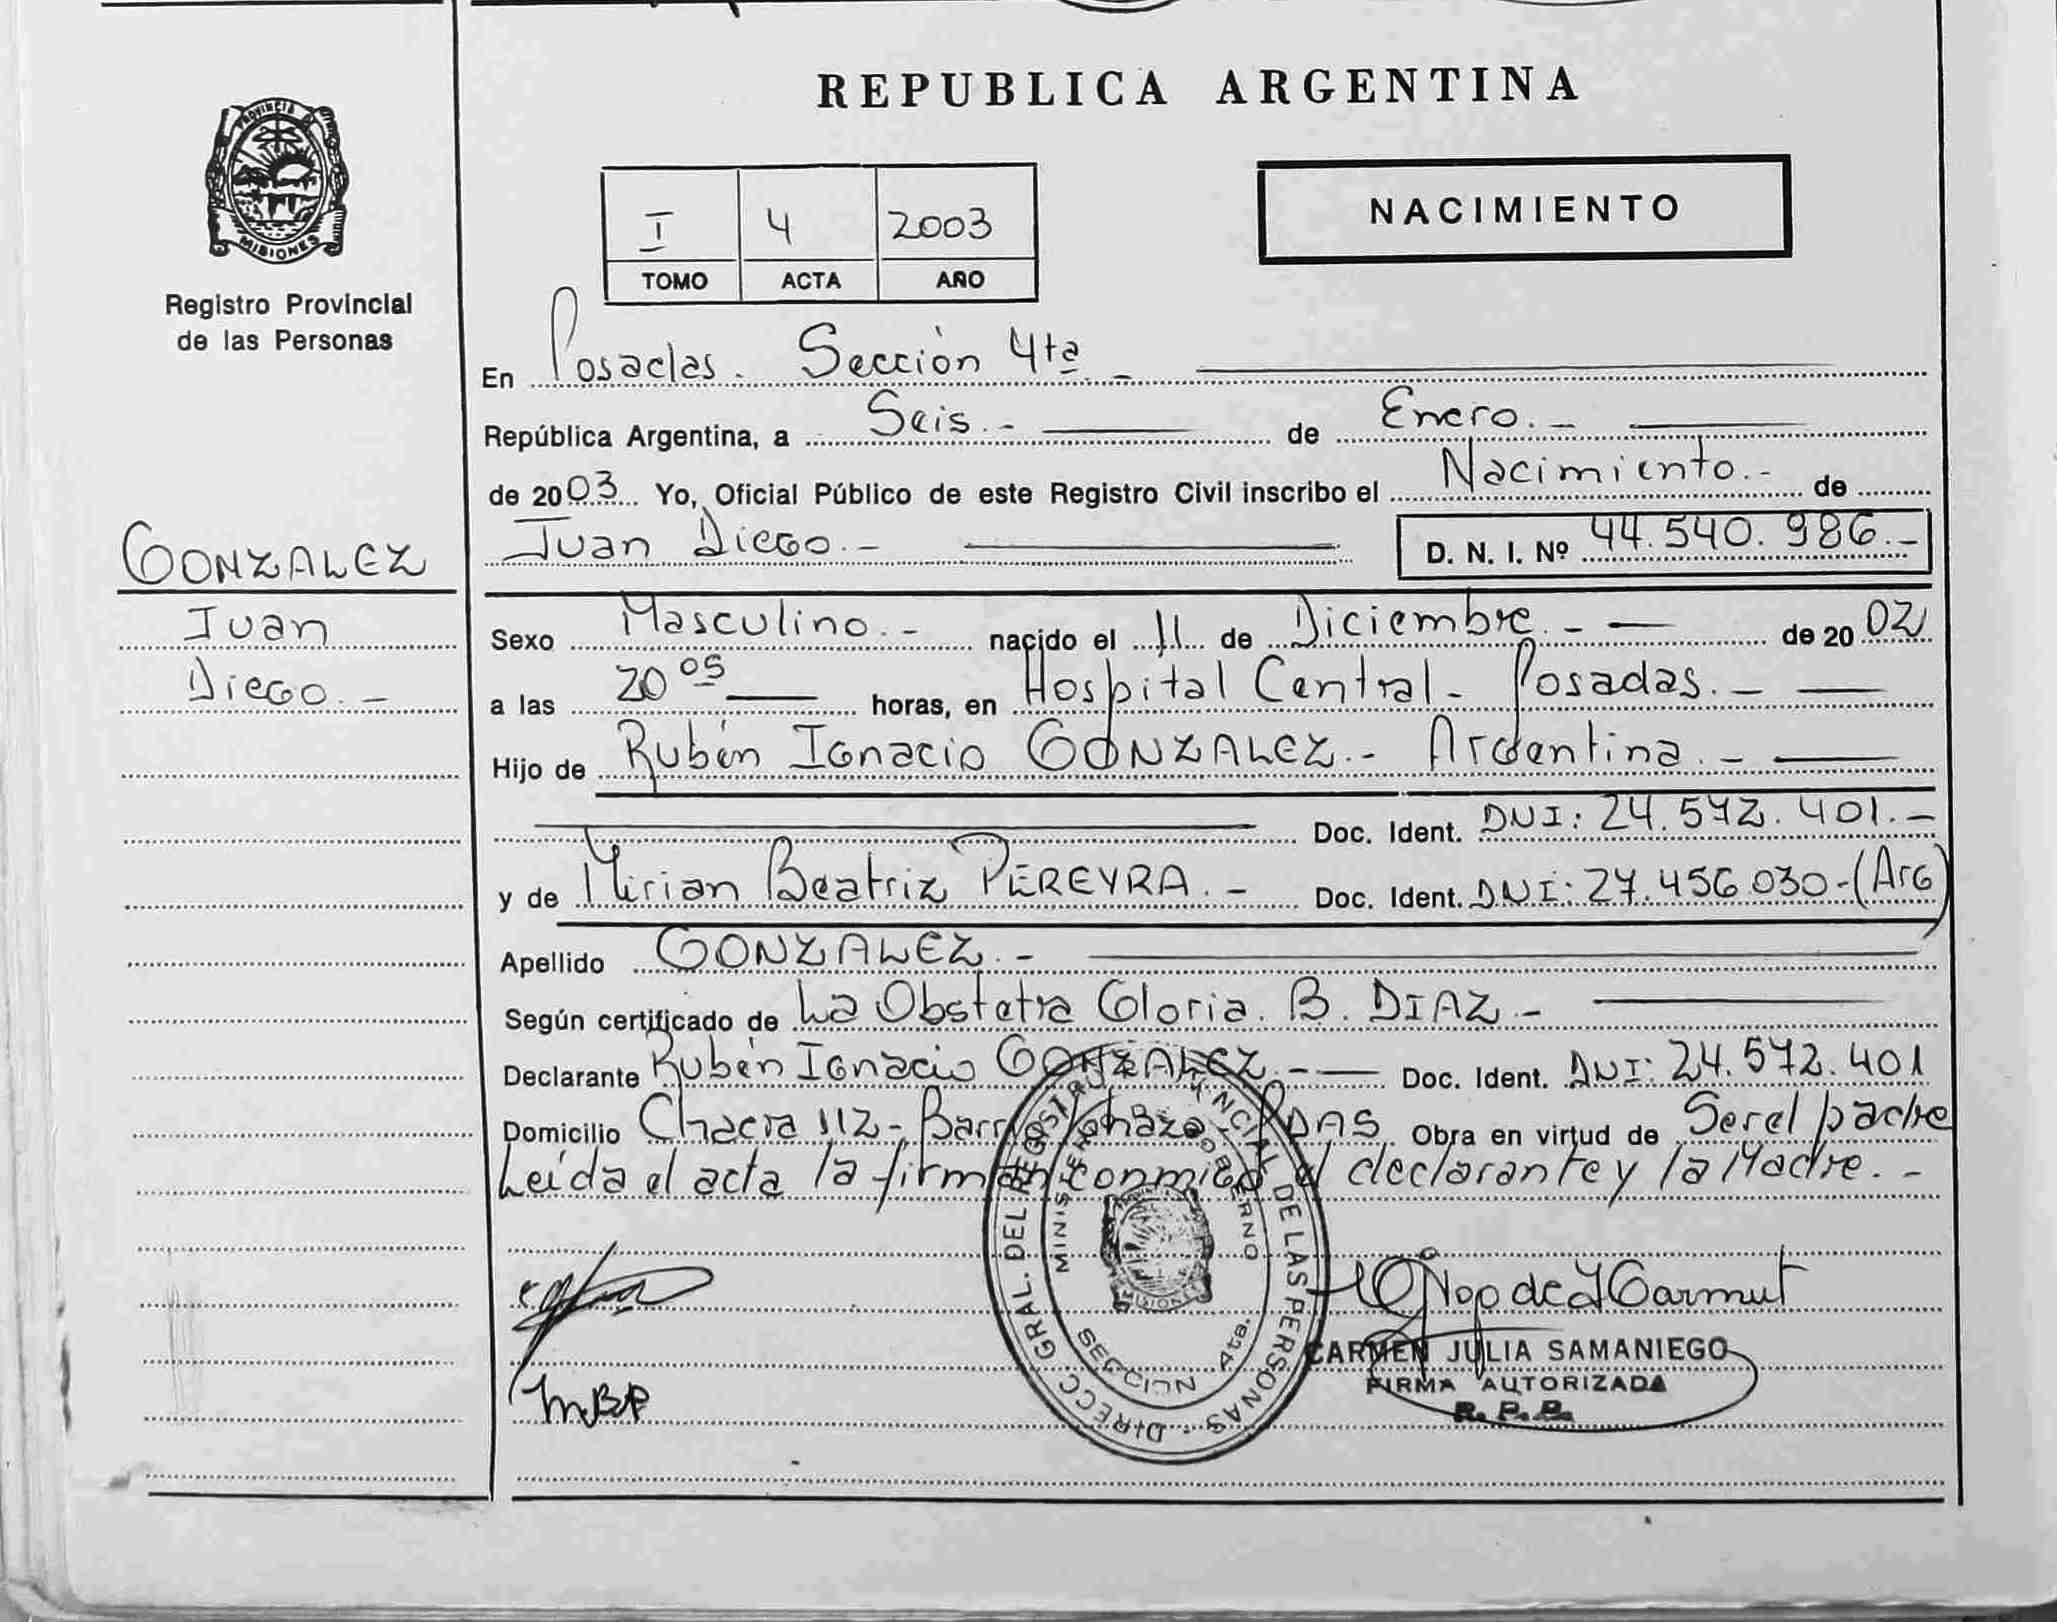 REPUBLICA ARGENTINA
PROVINCIA DE
MISIONES
Registro Provincial
de las Personas
I 4 2003
TOMO ACTA AÑO
NACIMIENTO
En Posadas. Sección 4ta. -
República Argentina, a Seis. - de Enero. -
de 2003 Yo, Oficial Público de este Registro Civil inscribo el Nacimiento. - de
GONZALEZ
Juan
Diego. -
Juan Diego. - D. N. I. Nº 44.540.986. -
Sexo Masculino. - nacido el 11 de Diciembre. - de 2002
a las 20 05 horas, en Hospital Central - Posadas. -
Hijo de Rubén Ignacio GONZALEZ. - Argentina. -
Doc. Ident. DNI: 24.572.401. -
y de Mirian Beatriz PEREYRA. - Doc. Ident. DNI: 27.456.030 - (Arg)
Apellido GONZALEZ. -
Según certificado de La Obstetra Gloria. B. DIAZ -
Declarante Rubén Ignacio GONZALEZ. - Doc. Ident. DNI: 24.572.401
Domicilio Chacra 112 - Barrio - PDAS Obra en virtud de Ser el padre
Leída el acta la firman conmigo el declarante y la Madre. -
DIRECC. GRAL. DEL REGISTRO PROVINCIAL DE LAS PERSONAS
MINISTERIO GOBIERNO
MISIONES
SECCION 4ta.
MBP
CARMEN JULIA SAMANIEGO
FIRMA AUTORIZADA
R. P. P.